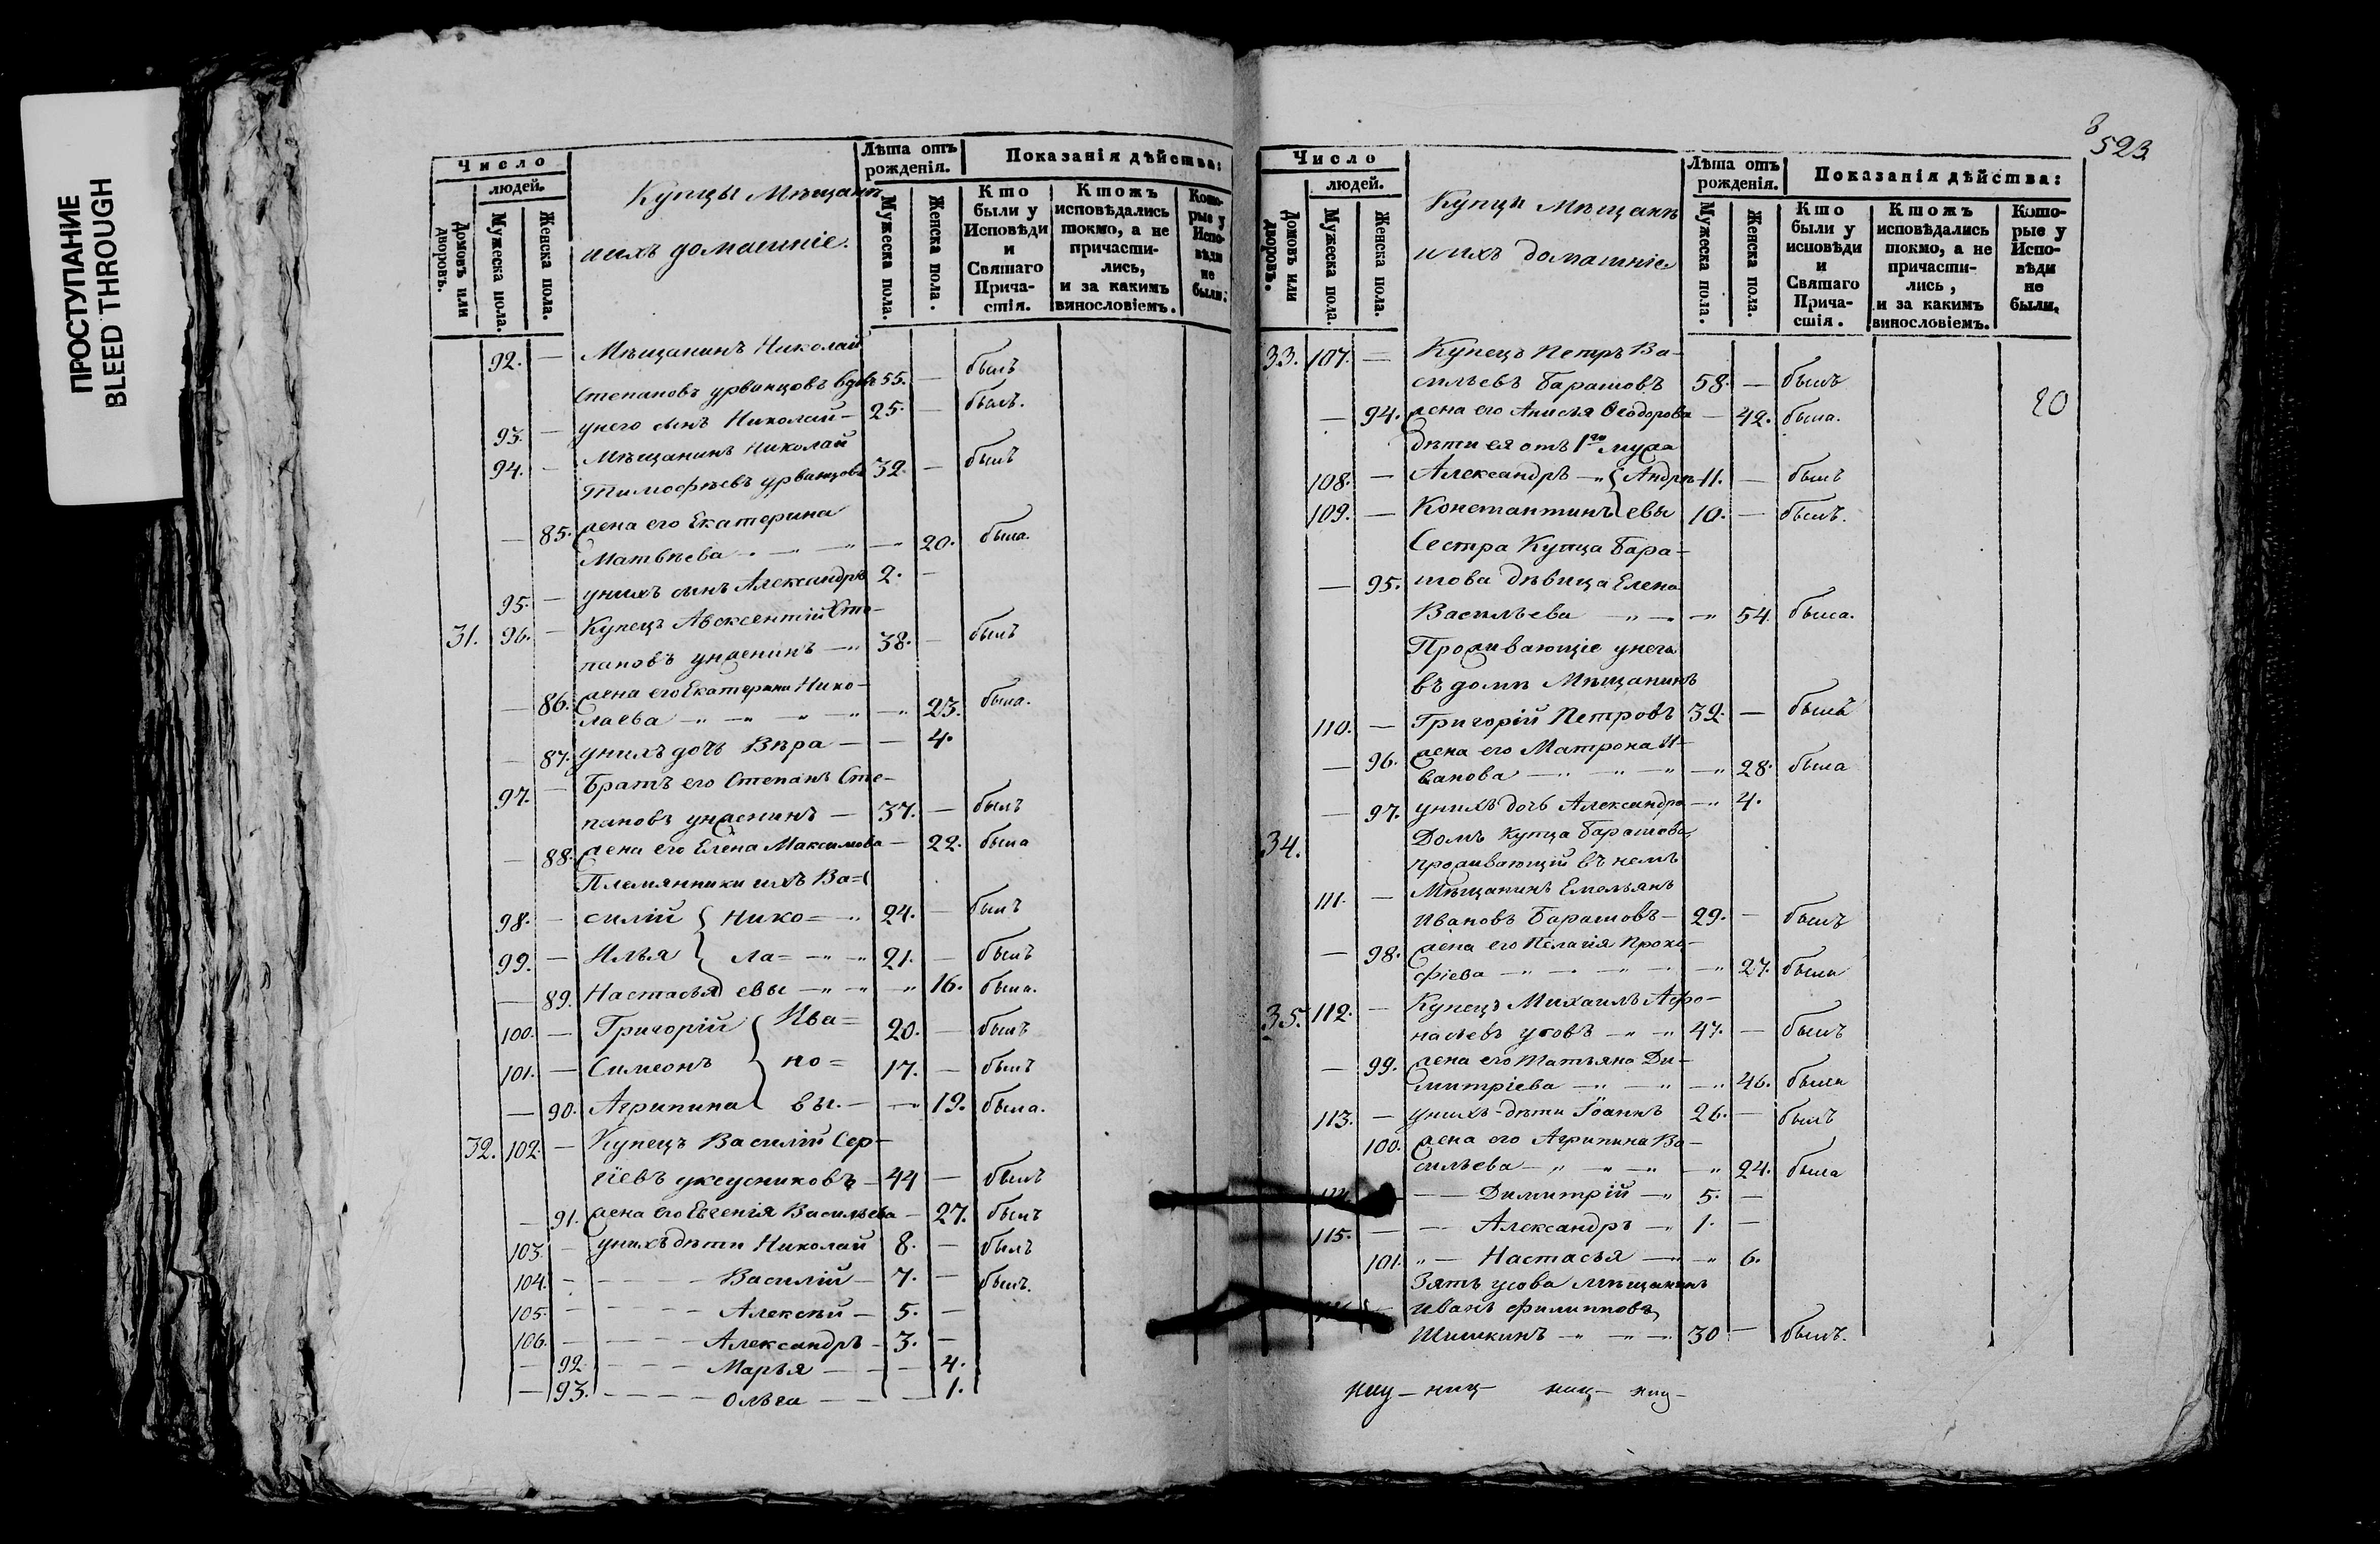 ПРОСТУПАНИЕ
BLEED THROUGH
Число
людей.
Домовъ или дворовъ.
Мужеска пола.
Женска пола.
Купцы Мѣщанѣ
и ихъ домашніе.
Лѣта отъ рожденія.
Мужеска пола.
Женска пола.
Показанія дѣйства:
Кто были у Исповѣди и Святаго Причастія.
Ктожъ исповѣдались токмо, а не причастились, и за какимъ винословіемъ.
Которые у Исповѣди не были:
92. — Мѣщанинъ Николай
Степановъ Урванцовъ вдовъ 55. — былъ
93. — у него сынъ Николай — 25. — былъ.
94. — Мѣщанинъ Николай
Тимофѣевъ Урванцовъ 32. — былъ
— 85. жена его Екатерина
Матвѣева — — — 20. была.
95. — у нихъ сынъ Александръ 2. —
31. 96. — Купецъ Авксентій Сте-
пановъ Унженинъ — 38. — былъ
— 86. жена его Екатерина Нико-
лаева — — — — 23. была.
— 87. у нихъ дочь Вѣра — — 4.
97. — Братъ его Степанъ Сте-
пановъ Унженинъ — 37. — былъ
— 88. жена его Елена Максимова — 22. была
Племянники ихъ Ва=
98. — силій { Нико= 24. — былъ
99. — Илья } ла= — 21. — былъ
— 89. Настасья евы — — 16. была.
100. — Григорій { Ива= 20. — былъ
101. — Симеонъ } но= 17. — былъ
— 90. Агрипина вы. — — 19. была.
32. 102. — Купецъ Василій Сер-
гіевъ Уксусниковъ — 44 — былъ
— 91. жена его Евгенія Васильева — 27. былъ
103. — у нихъ дѣти Николай 8. — былъ
104. — — — — Василій — 7. — былъ.
105. — — — — Алексѣй — 5. —
106. — — — — Александръ — 3. —
— 92. — — — Марья — — — 4.
— 93. — — — — Ольга — — — 1.
523
Число
людей.
Домовъ или дворовъ.
Мужеска пола.
Женска пола.
Купцы Мѣщанѣ
и ихъ домашніе
Лѣта отъ рожденія.
Мужеска пола.
Женска пола.
Показанія дѣйства:
Кто были у исповѣди и Святаго Причастія.
Ктожъ исповѣдались токмо, а не причастились, и за какимъ винословіемъ.
Которые у Исповѣди не были.
33. 107. — Купецъ Петръ Ва-
сильевъ Барашовъ 58. — былъ
20
— 94. жена его Анисья Ѳеодорова — 42. была.
дѣти ея отъ 1го мужа
108. — Александръ — { Андре- 11. — былъ
109. — Константинъ } евы 10. — былъ.
Сестра Купца Бара-
— 95. шова дѣвица Елена
Васильева — — — 54. была.
Проживающіе у него
въ домѣ Мѣщанинъ
110. — Григорій Петровъ 32. — былъ
— 96. жена его Матрона И-
ванова — — — — 28. была
— 97. у нихъ дочь Александра — 4.
34. Домъ Купца Барашова,
проживающій въ немъ
111. — Мѣщанинъ Емельянъ
Ивановъ Барашовъ — 29. — былъ
— 98. жена его Пелагія Проко-
фіева — — — — — 27. была
35. 112. — Купецъ Михаилъ Афо-
насьевъ Усовъ — — 47. — былъ
— 99. жена его Татьяна Ди-
митріева — — — 46. была
113. — у нихъ дѣти Іоаннъ 26. — былъ
100. жена его Агрипина Ва-
сильева — — — — 24. была
— — Димитрій — 5. —
115. — — Александръ — 1. —
101. — Настасья — — 6.
Зять Усова Мѣщанинъ
Иванъ Филипповъ
Шишкинъ — — — 30 — былъ.